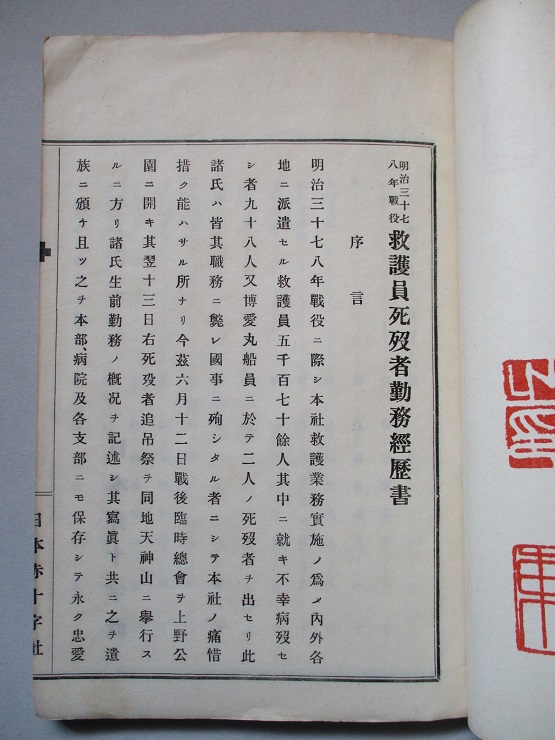 明治三十七
八年戰役
救護員死歿者勤務經歷書
序言
明治三十七八年戰役ニ際シ本社救護業務實施ノ爲メ內外各
地ニ派遣セル救護員五千百七十餘人其中ニ就キ不幸病歿セ
シ者九十八人又博愛丸船員ニ於テ二人ノ死歿者ヲ出セリ此
諸氏ハ皆其職務ニ斃レ國事ニ殉シタル者ニシテ本社ノ痛惜
措ク能ハサル所ナリ今茲六月十二日戰後臨時總會ヲ上野公
園ニ開キ其翌十三日右死歿者追吊祭ヲ同地天神山ニ擧行ス
ルニ方リ諸氏生前勤務ノ槪況ヲ記述シ其寫眞ト共ニ之ヲ遺
族ニ頒ケ且ツ之ヲ本部、病院及各支部ニモ保存シテ永ク忠愛
日本赤十字社